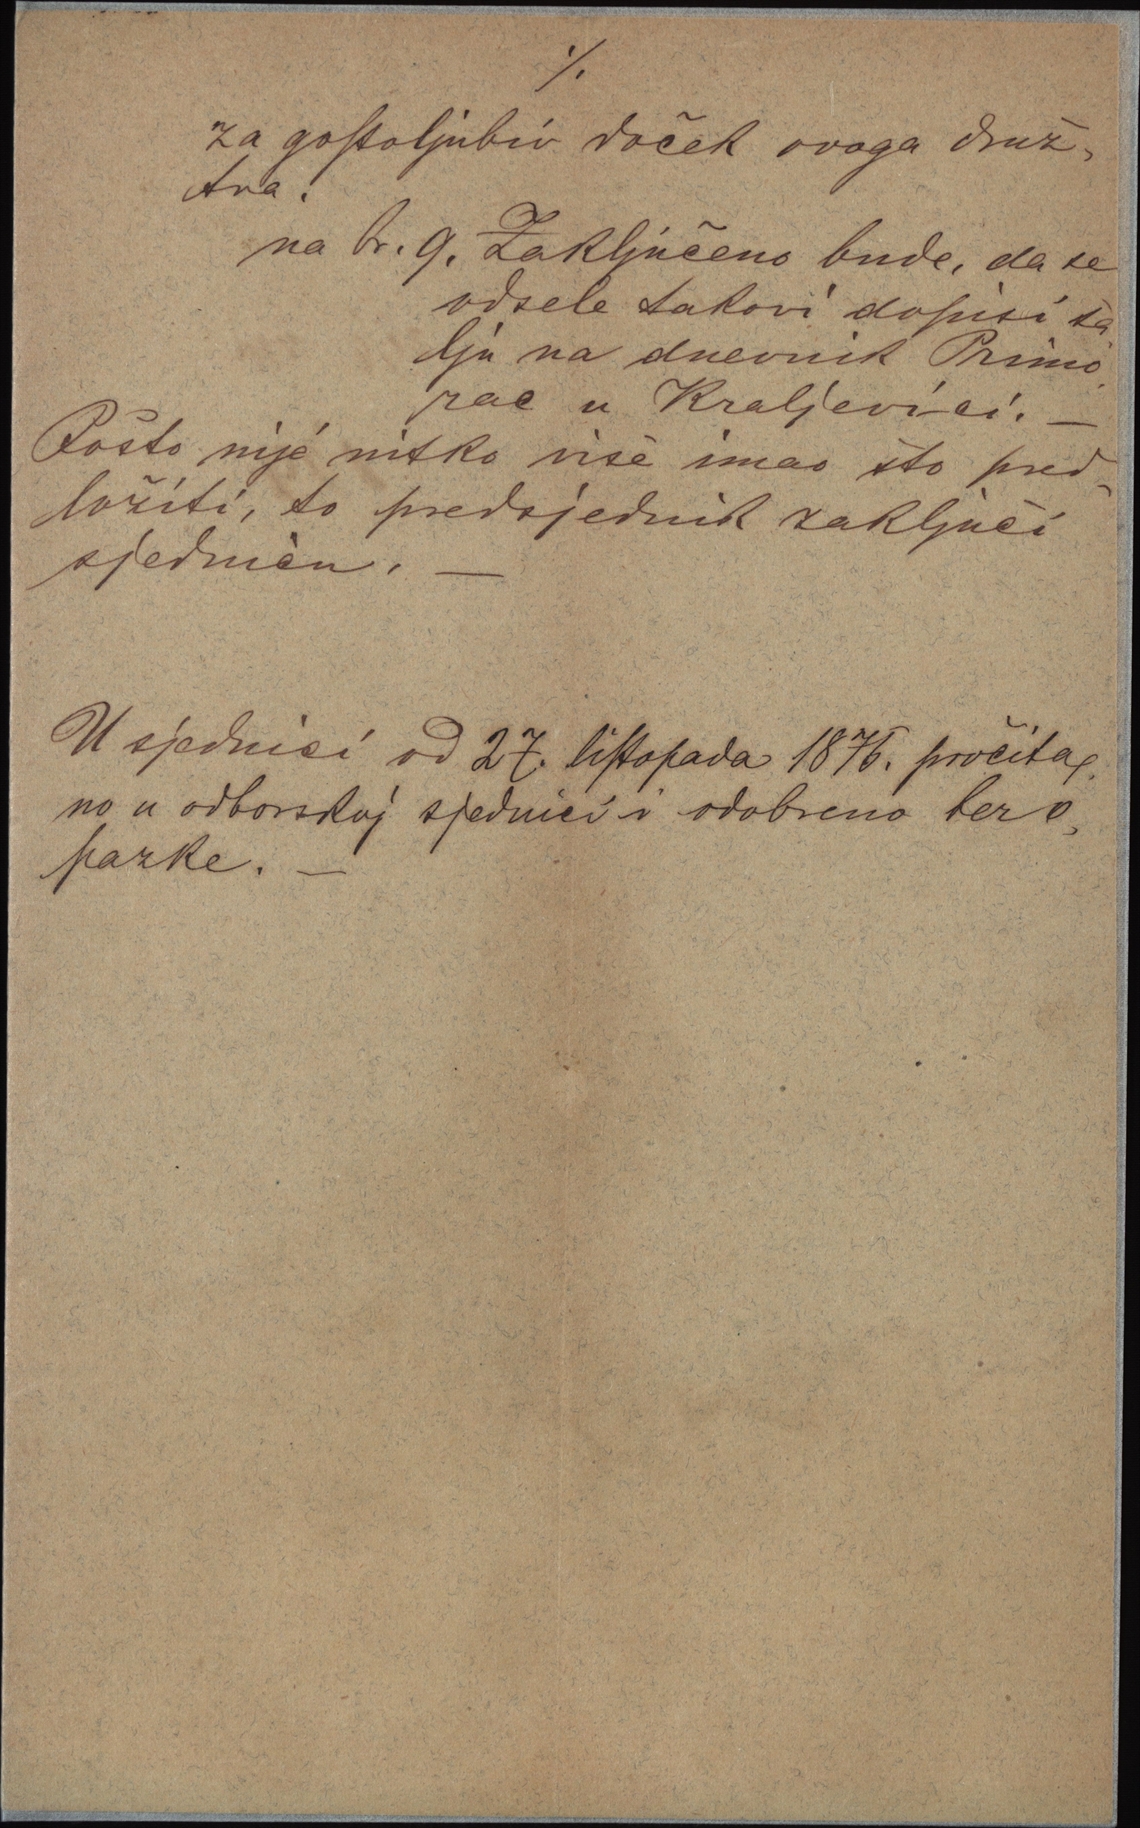 ·/.
za gostoljubiv doček ovoga druž-
tva.
na br. 9. Zaključeno bude, da se
odsele takovi dopisi ša
lju na dnevnik Primo
rac u Kraljevici. —
Pošto nije nitko više imao što pred-
ložiti, to predsjednik zaključi
sjednicu. —
U sjednici od 27. listopada 1876. pročita-
no u odborskoj sjednici i odobreno bez o-
pazke. —